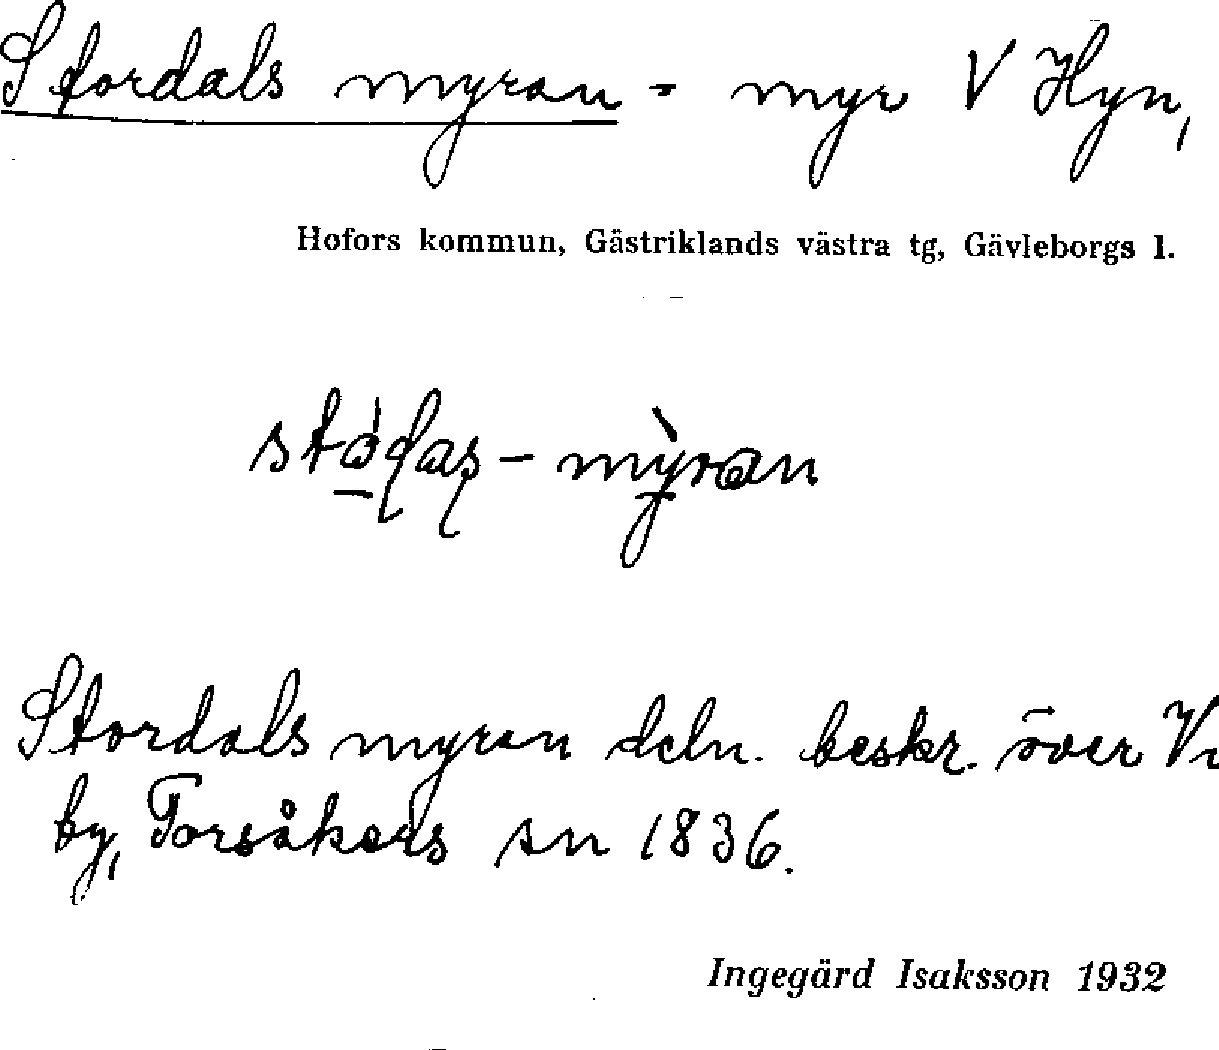 Stordals myran - myr V Hyn,
Hofors kommun, Gästriklands västra tg, Gävleborgs l.
Stordals myran deln. beskr. över
by, Torsåkers sn 1836.
Ingegärd Isaksson 1932